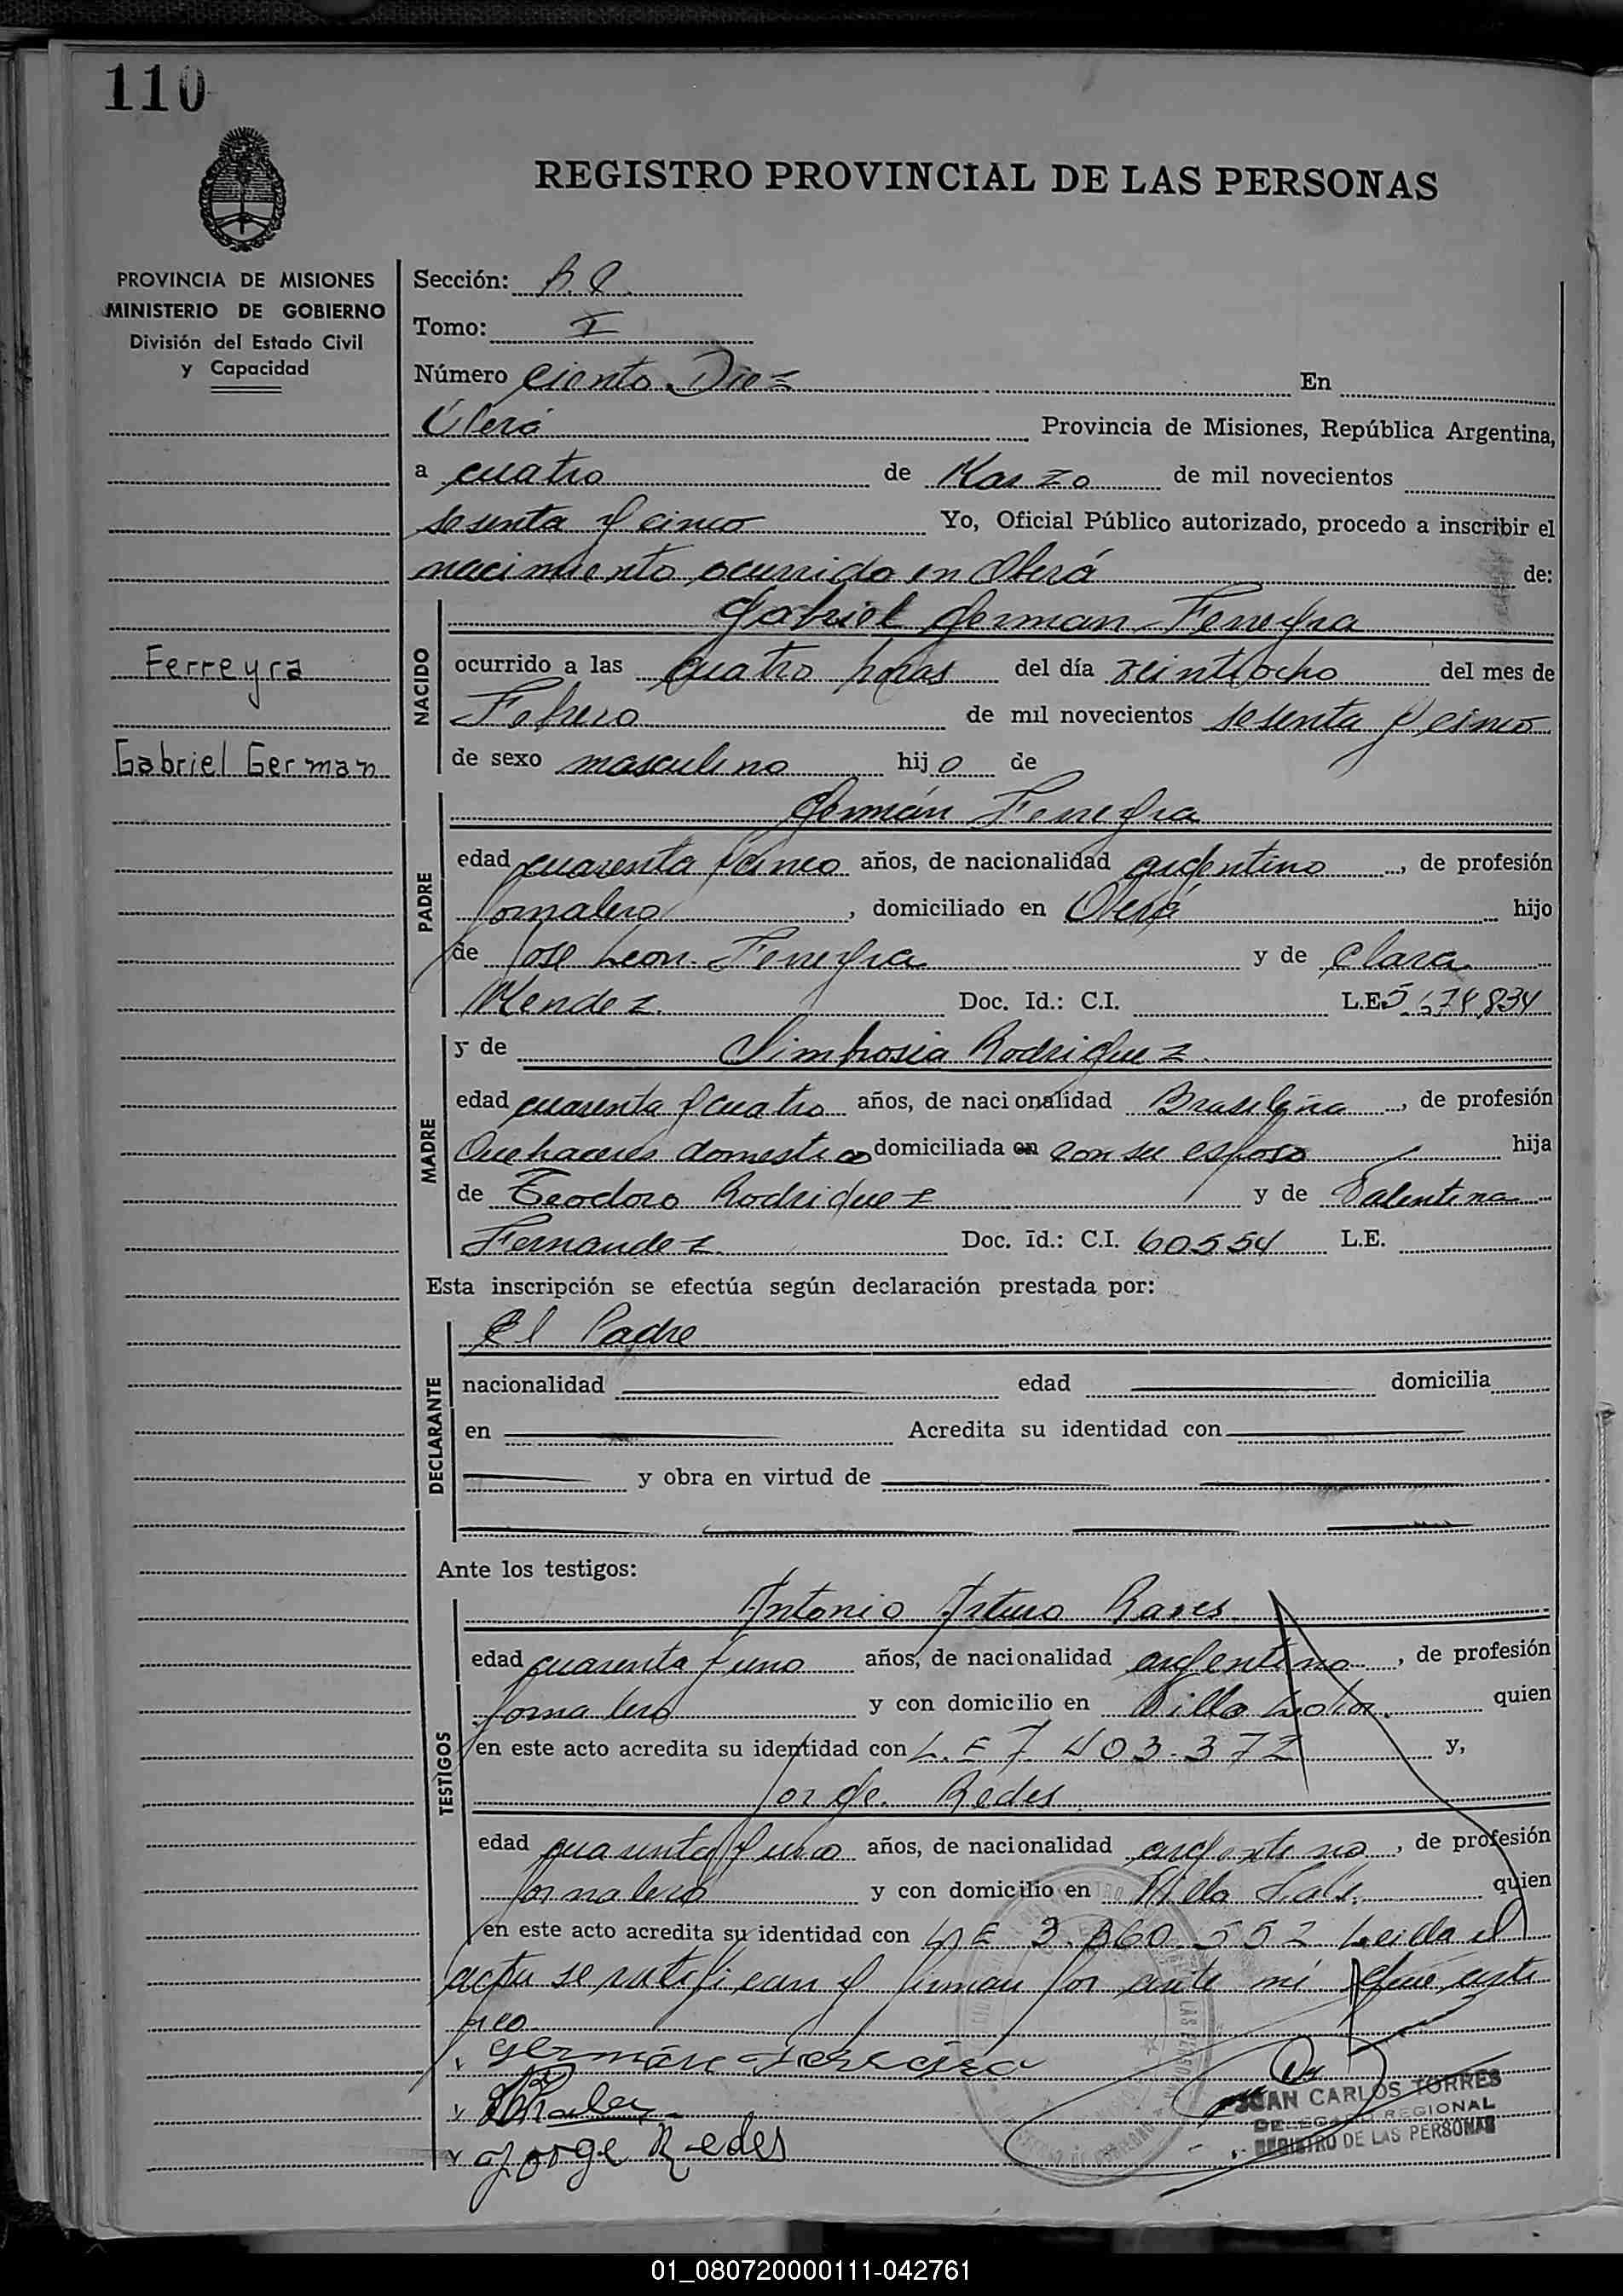 110
REGISTRO PROVINCIAL DE LAS PERSONAS
PROVINCIA DE MISIONES
MINISTERIO DE GOBIERNO
División del Estado Civil
y Capacidad
Ferreyra
Gabriel German
Sección:
Tomo: I
Número Ciento Diez En
Oberá Provincia de Misiones, República Argentina,
a cuatro de Marzo de mil novecientos
sesenta y cinco Yo, Oficial Público autorizado, procedo a inscribir el
nacimiento ocurrido en Oberá de:
NACIDO
Gabriel German Ferreyra
ocurrido a las cuatro horas del día veintiocho del mes de
Febrero de mil novecientos sesenta y cinco
de sexo masculino hijo de
PADRE
Germán Ferreyra
edad cuarenta y cinco años, de nacionalidad argentino, de profesión
Jornalero, domiciliado en Oberá hijo
de Jose Leon Ferreyra y de Clara
Mendez. Doc. Id.: C.I. L.E.
MADRE
y de Rodriguez
edad cuarenta y cuatro años, de nacionalidad Brasileña, de profesión
Quehaceres domestico domiciliada en con su esposo hija
de Teodoro Rodriguez y de Valentina
Fernandez. Doc. Id.: C.I. 60554 L.E.
Esta inscripción se efectúa según declaración prestada por:
DECLARANTE
El Padre
nacionalidad edad domicilia
en Acredita su identidad con
y obra en virtud de
Ante los testigos:
TESTIGOS
Antonio Arturo
edad cuarenta y uno años, de nacionalidad argentino, de profesión
Jornalero y con domicilio en Villa quien
en este acto acredita su identidad con L.E 7.403.372 y,
Jorge Redes
edad cuarenta y uno años, de nacionalidad argentino, de profesión
Jornalero y con domicilio en Villa quien
en este acto acredita su identidad con Leida el
acta se ratifican y firman por ante mi que
German
Jorge Redes
JUAN CARLOS TORRES
DELEGADO REGIONAL
REGISTRO DE LAS PERSONAS
01_080720000111-042761